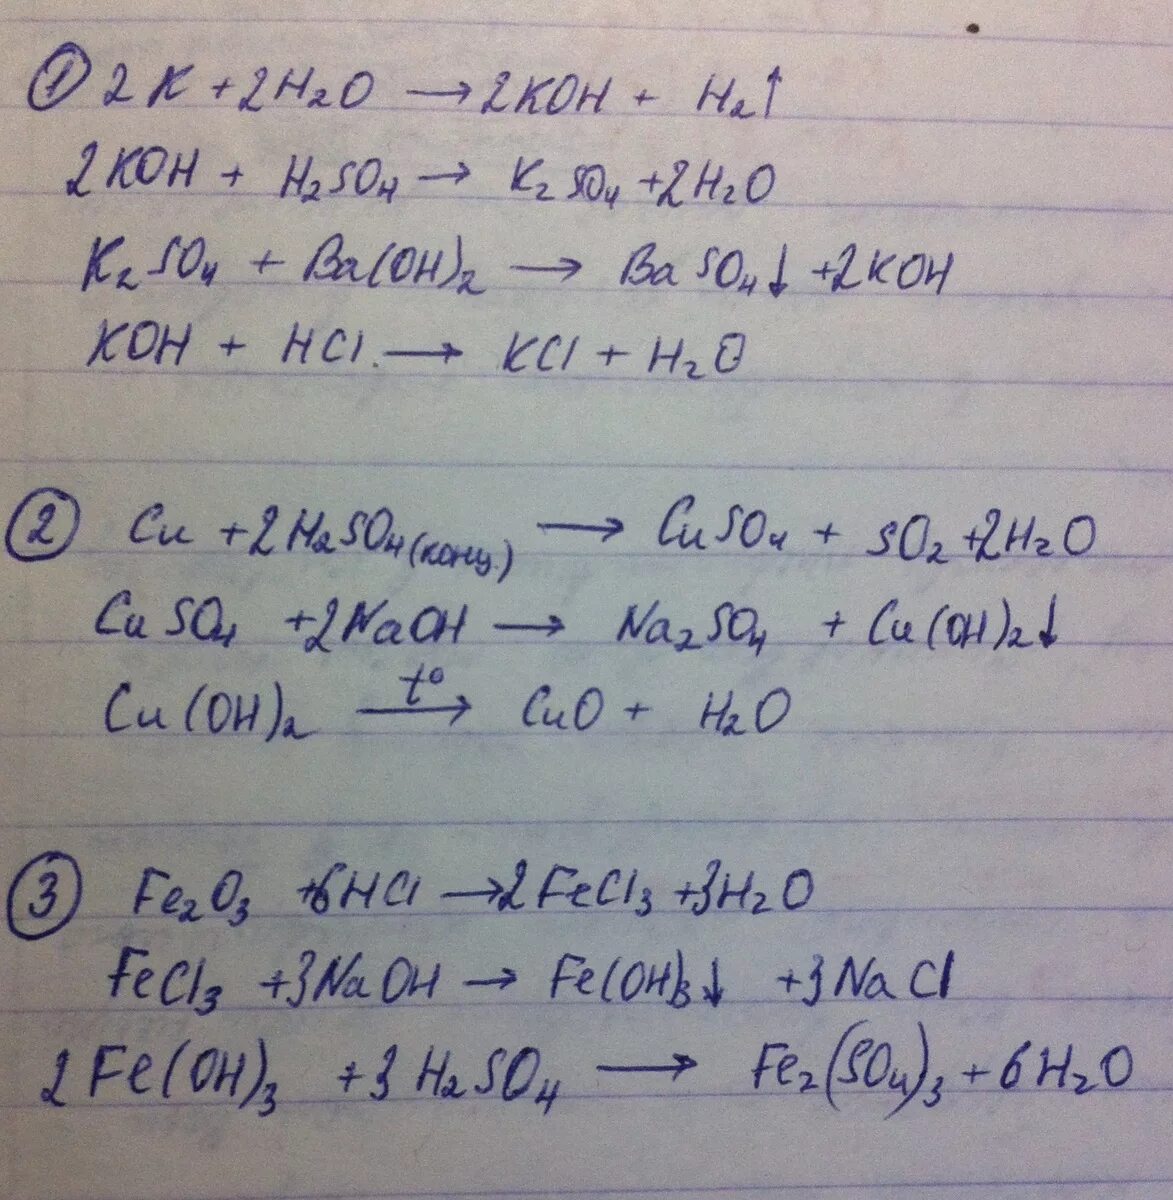 ① 2K + 2H₂O → 2KOH + H₂↑
2KOH + H₂SO₄ → K₂SO₄ + 2H₂O
K₂SO₄ + Ba(OH)₂ → BaSO₄↓ + 2KOH
KOH + HCl → KCl + H₂O
② Cu + 2H₂SO₄(конц.) → CuSO₄ + SO₂ + 2H₂O
CuSO₄ + 2NaOH → Na₂SO₄ + Cu(OH)₂↓
Cu(OH)₂ t°→ CuO + H₂O
③ Fe₂O₃ + 6HCl → 2FeCl₃ + 3H₂O
FeCl₃ + 3NaOH → Fe(OH)₃↓ + 3NaCl
2Fe(OH)₃ + 3H₂SO₄ → Fe₂(SO₄)₃ + 6H₂O